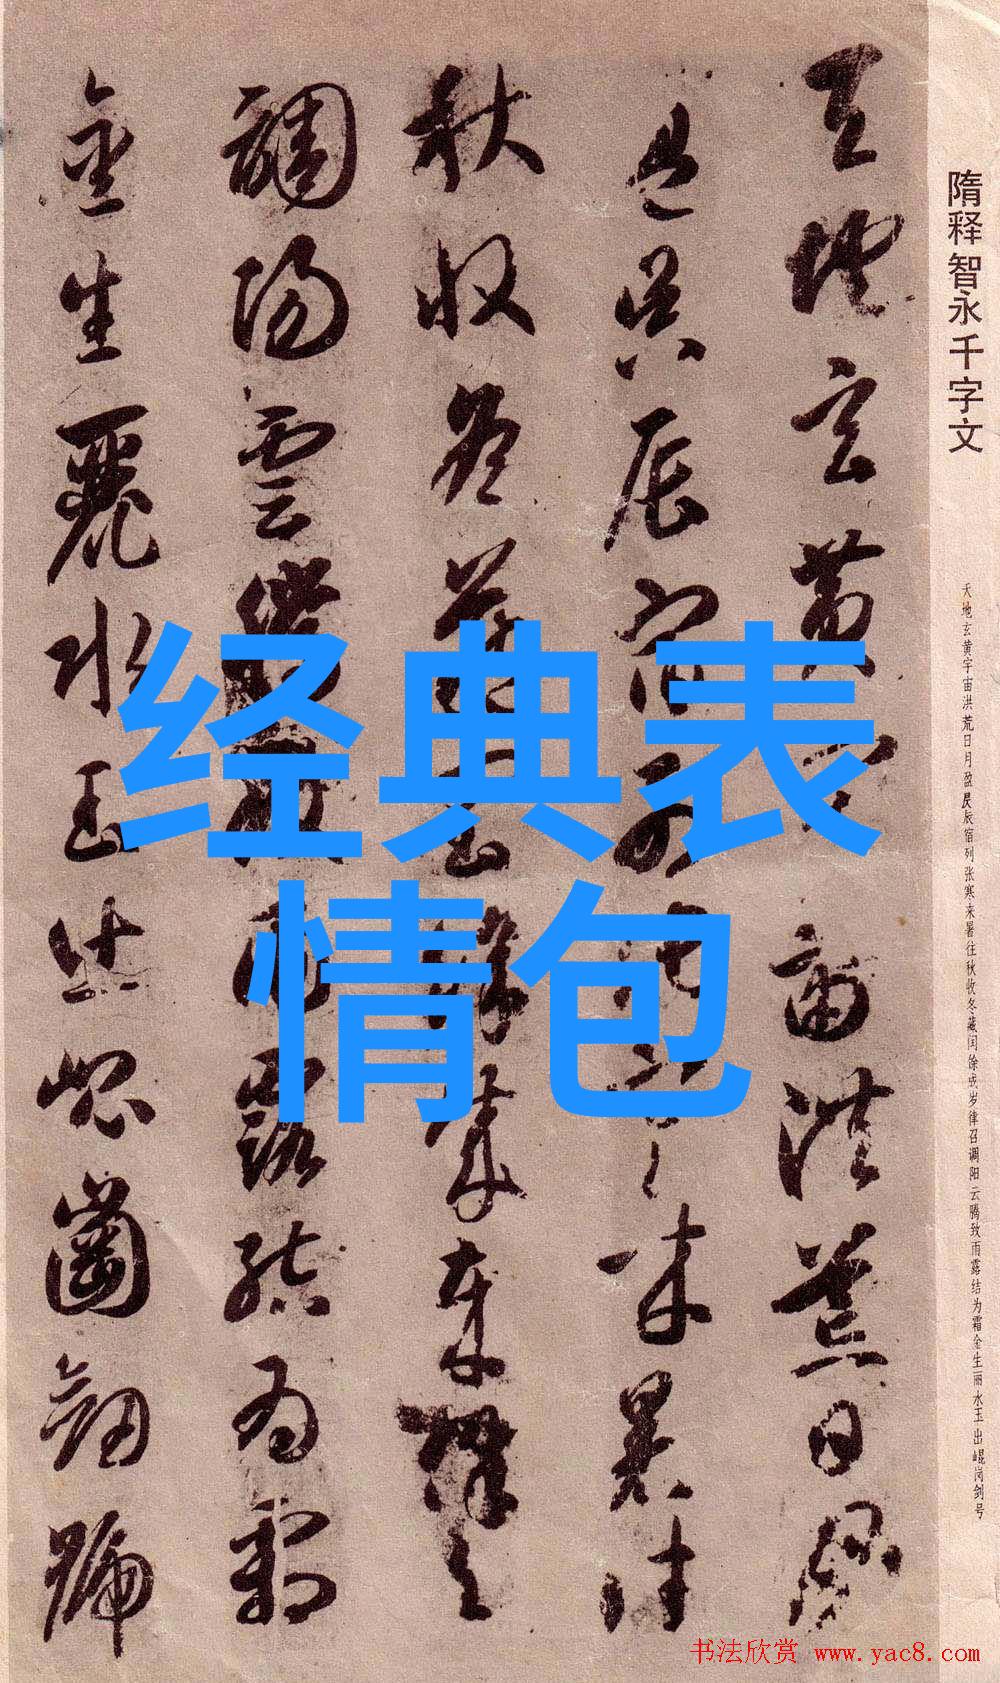 隋释智永千字文
天地玄黄宇宙洪荒日月盈昃辰宿列张寒来暑往秋收冬藏闰馀成岁律召调阳云腾致雨露结为霜金生丽水玉出崐岗剑号
天地玄黄宇宙洪荒日月
盈昃辰宿列張寒来暑往
秋收冬藏閏餘成歲律召
調陽雲騰致雨露結為霜
金生麗水玉出崐岡劍號
经典表
情包
书法欣赏 www.yac8.com